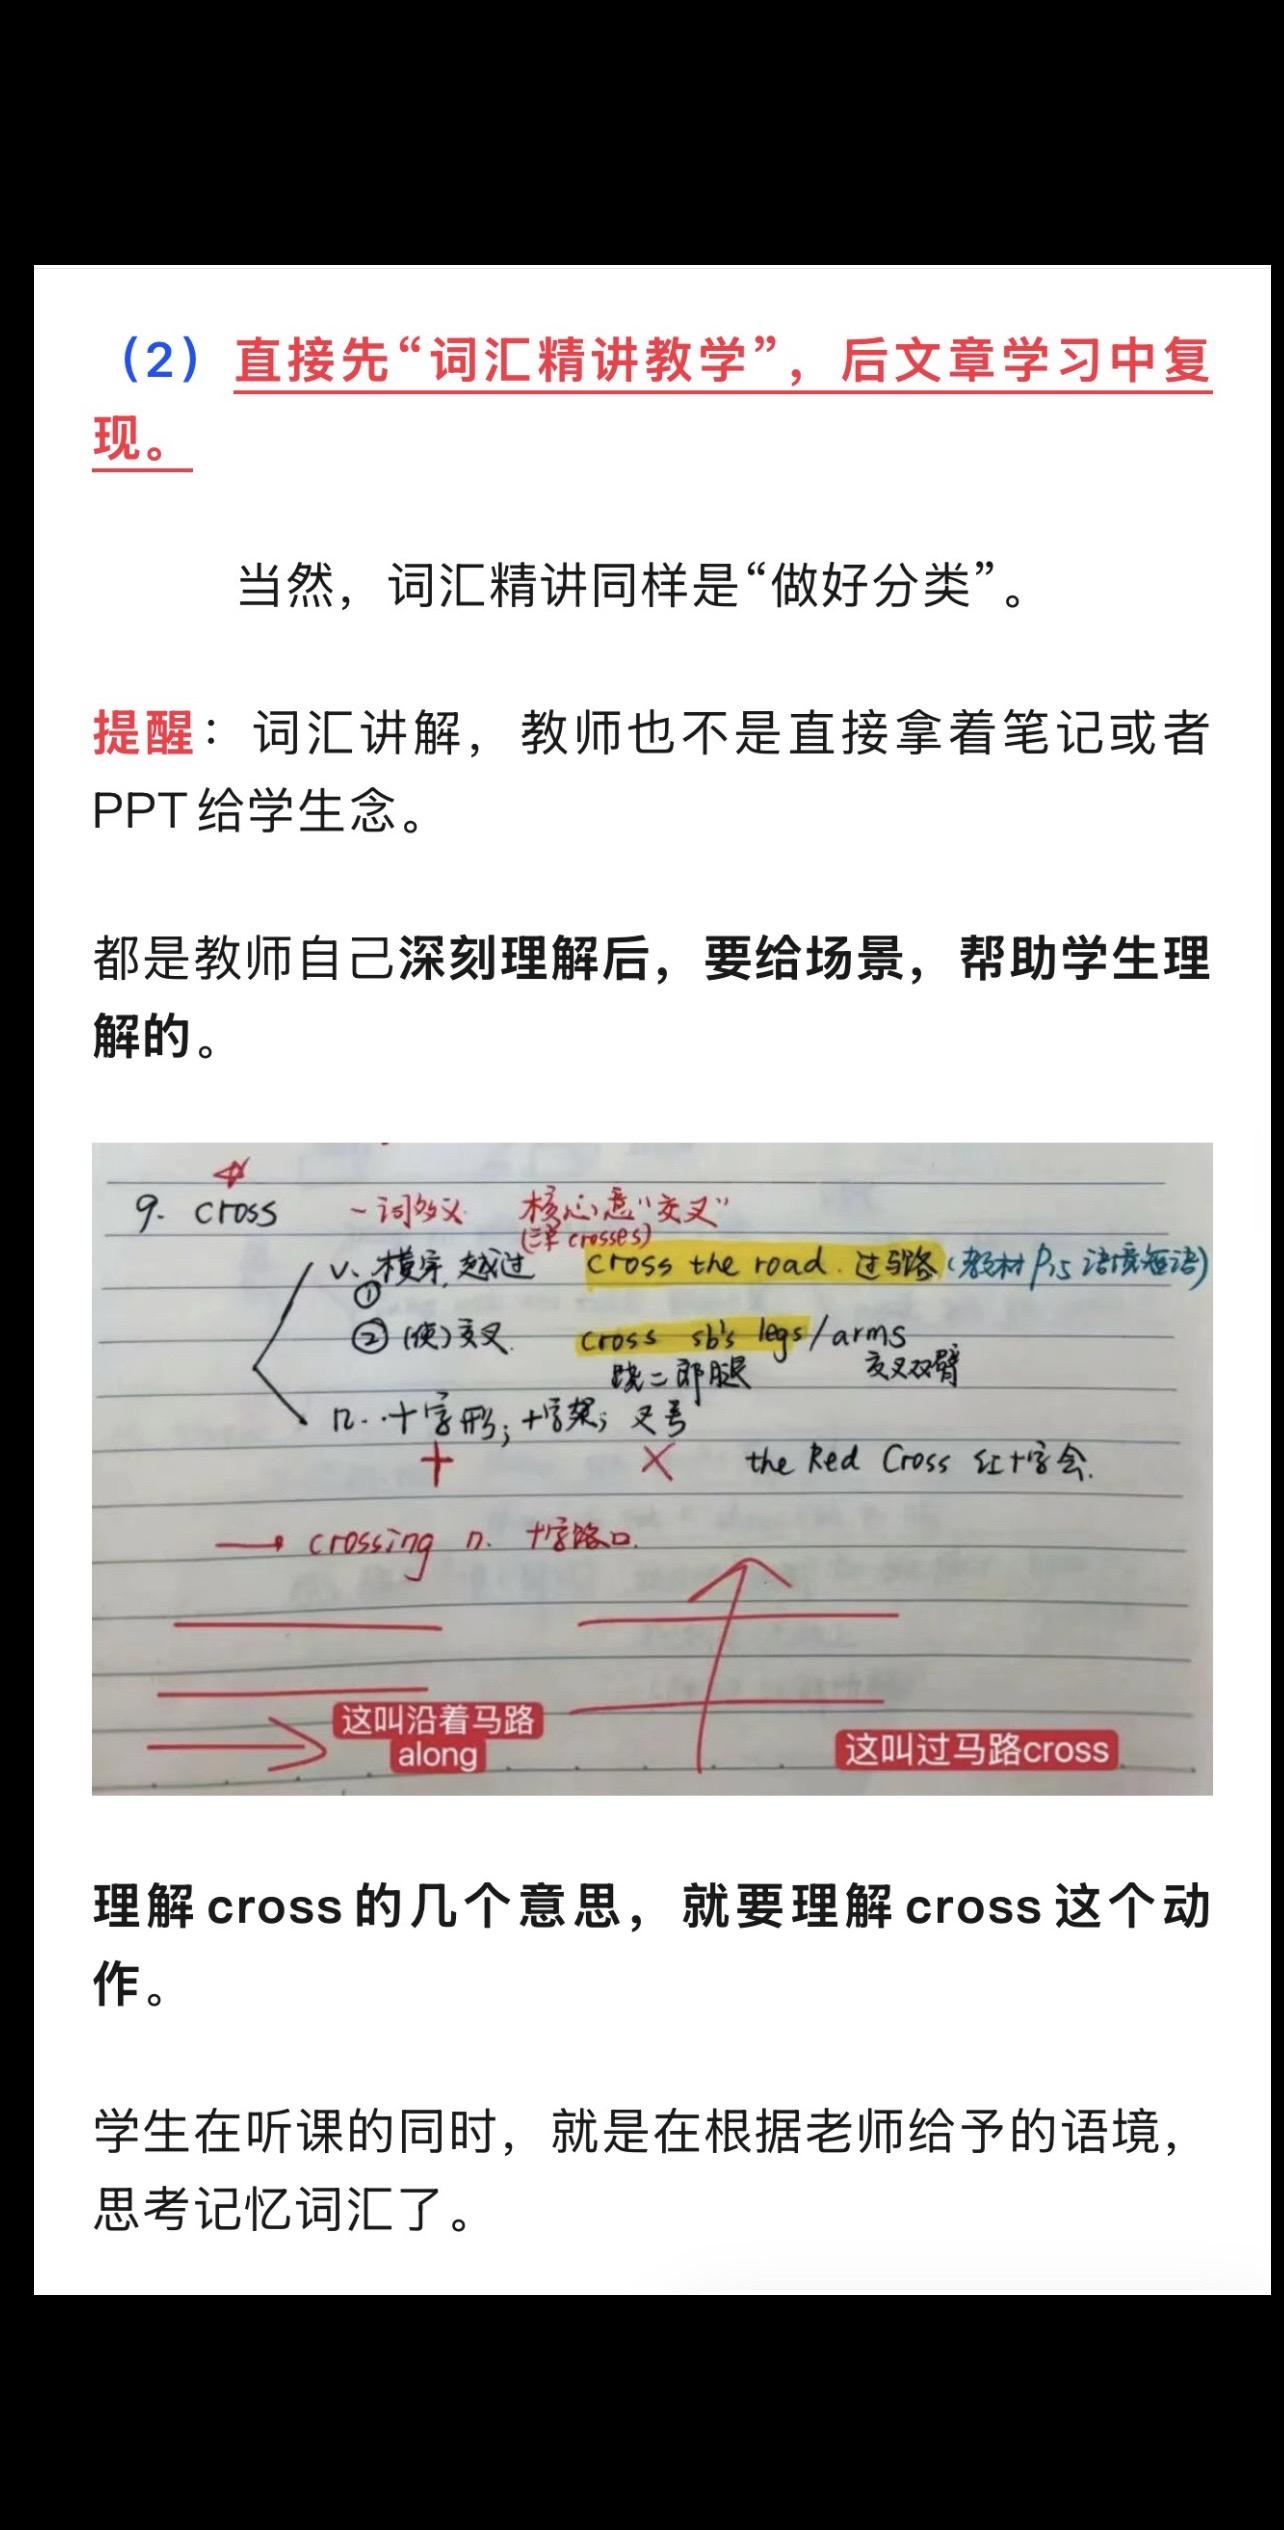 （2）直接先“词汇精讲教学”，后文章学习中复
现。
当然，词汇精讲同样是“做好分类”。
提醒：词汇讲解，教师也不是直接拿着笔记或者
PPT给学生念。
都是教师自己深刻理解后，要给场景，帮助学生理
解的。
9. cross 一词多义 核心意“交叉”
(三单 crosses)
v. 横穿，越过 cross the road. 过马路（教材P15 语境短语）
①
②（使）交叉. cross sb's legs/arms
跷二郎腿 交叉双臂
n. 十字形；十字架；叉号
+ × the Red Cross 红十字会.
→ crossing n. 十字路口.
这叫沿着马路
along
这叫过马路cross
理解cross的几个意思，就要理解cross这个动
作。
学生在听课的同时，就是在根据老师给予的语境，
思考记忆词汇了。